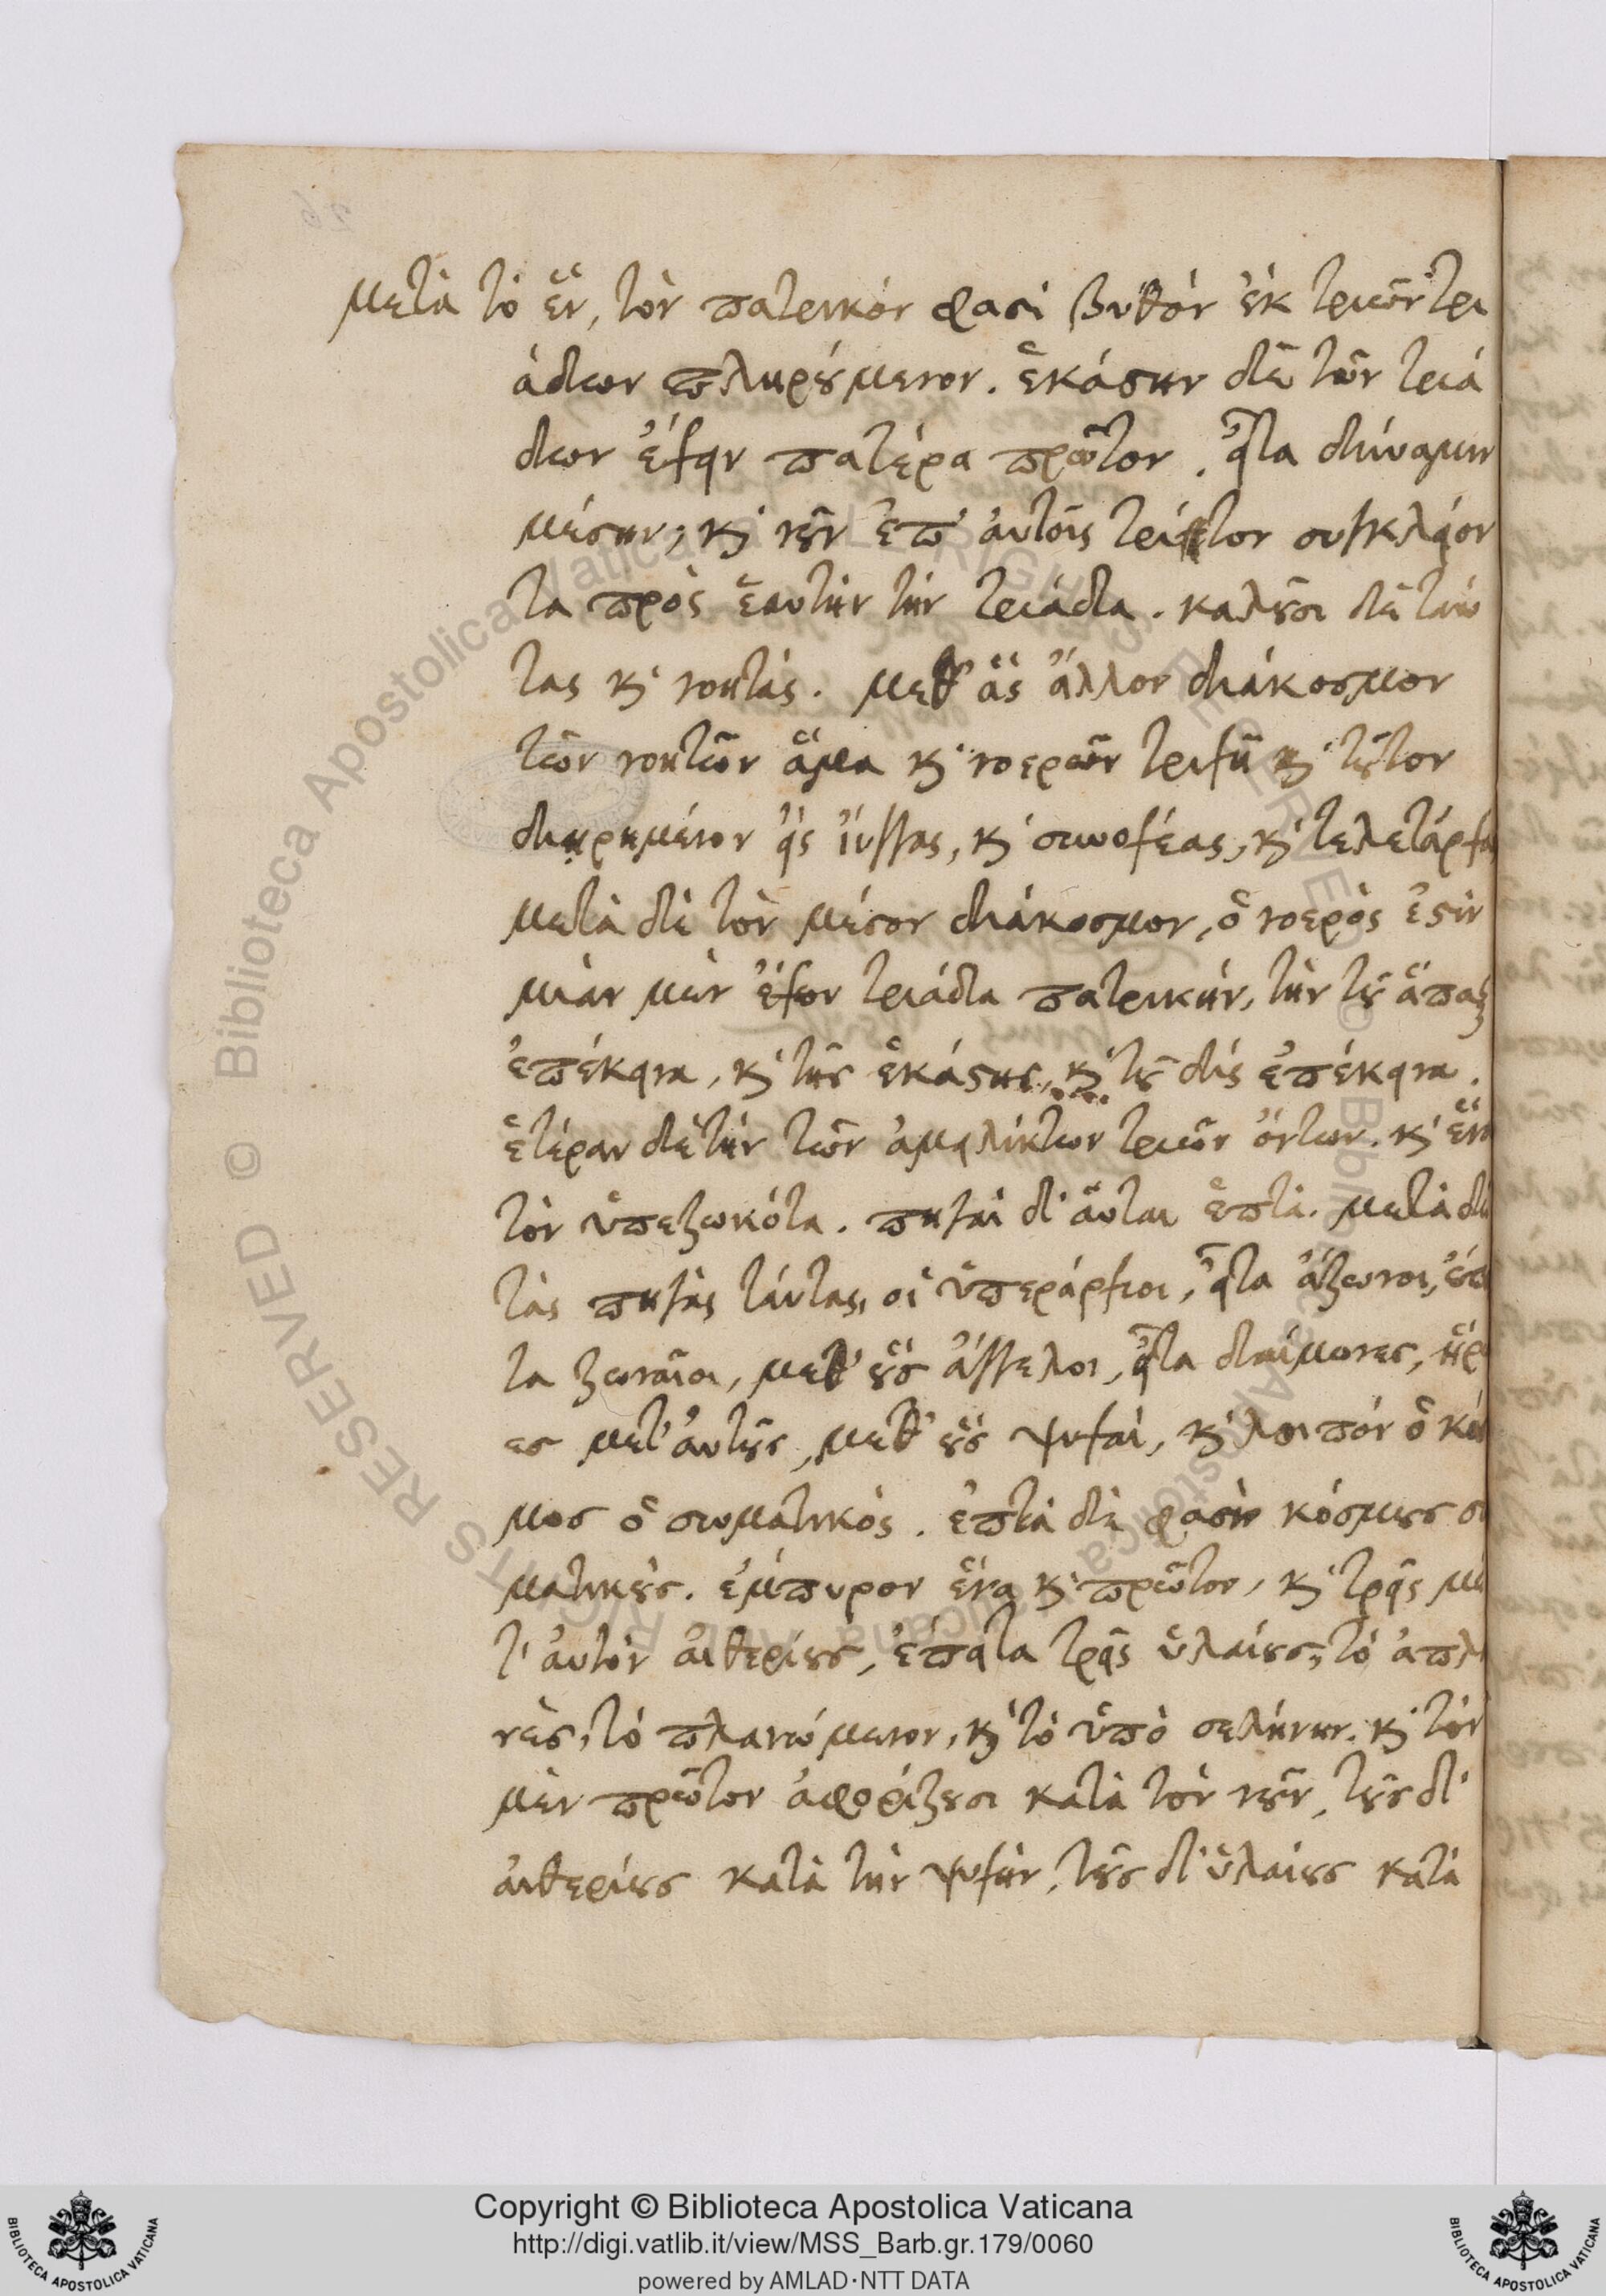 μετὰ τὸ ἓν, τὸν πατρικόν φασι βυθόν ἐκ τριῶν τρι
άδων πληρούμενον. ἑκάστην δὲ τῶν τριά
δων ἔχειν πατέρα πρῶτον. εἶτα δύναμιν
μέσην, καὶ νοῦν ἐπ' αὐτοῖς τρίτον συγκλείον
τα πρὸς ἑαυτὴν τὴν τριάδα. καλοῦσι δὲ ταύ
τας καὶ νοητάς. μεθ' ἃς ἄλλον διάκοσμον
τῶν νοητῶν ἅμα καὶ νοερῶν τριχῆ καὶ τοῦτον
διῃρημένον εἰς ἴυγγας, καὶ συνοχέας, καὶ τελετάρχα
μετὰ δὲ τὸν μέσον διάκοσμον, ὁ νοερὸς ἐστὶν
μίαν μὲν ἔχων τριάδα πατρικὴν, τὴν τοῦ ἅπαξ
ἐπέκεινα, καὶ τῆς ἑκάστης, καὶ τοῦ δὶς ἐπέκεινα.
ἑτέραν δὲ τὴν τῶν ἀμειλίκτων τριῶν ὄντων. καὶ ἕνα
τὸν ὑπεζωκότα. πηγαὶ δ' αὗται ἑπτὰ. μετὰ δὲ
τὰς πηγὰς ταύτας, οἱ ὑπεράρχιοι, εἶτα ἄζωνοι, ἔπει
τα ζωναῖοι, μεθ' οὓς ἄγγελοι, εἶτα δαίμονες, ἥρω
ες μετ' αὐτοῦς, μεθ' οὓς ψυχαὶ, καὶ λοιπόν ὁ κόσ
μος ὁ σωματικὸς. ἑπτὰ δὲ φασὶν κόσμους σω
ματικοὺς. ἐμπύρον ἕνα καὶ πρῶτον, καὶ τρεῖς με
τ' αὐτὸν αἰθερίους, ἔπειτα τρεῖς ὑλαίους, τό ἀπλα
νὲς, τό πλανώμενον, καὶ τὸ ὑπὸ σελήνην. καὶ τὸν
μὲν πρῶτον ἀφορίζουσι κατὰ τὸν νοῦν, τοὺς δ'
αἰθερίους κατὰ τὴν ψυχὴν, τοὺς δ' ὑλαίους κατὰ
Copyright © Biblioteca Apostolica Vaticana
http://digi.vatlib.it/view/MSS_Barb.gr.179/0060
powered by AMLAD·NTT DATA
BIBLIOTECA APOSTOLICA VATICANA
BIBLIOTECA APOSTOLICA VATICANA